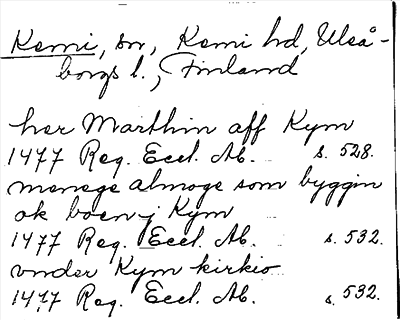 Kemi, sn, Kemi hd, Uleå-
borgs l., Finland
her Marthin aff Kym
1477 Reg. Eccl. Ab. s. 528.
menege almoge som byggin
ok boen j Kym
1477 Reg. Eccl. Ab. s. 532.
vnder Kym kirkio
1477 Reg. Eccl. Ab. s. 532.